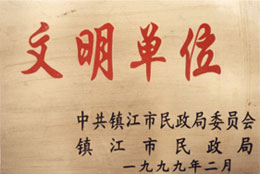 文明单位
中共镇江市民政局委员会
镇江市民政局
一九九九年二月